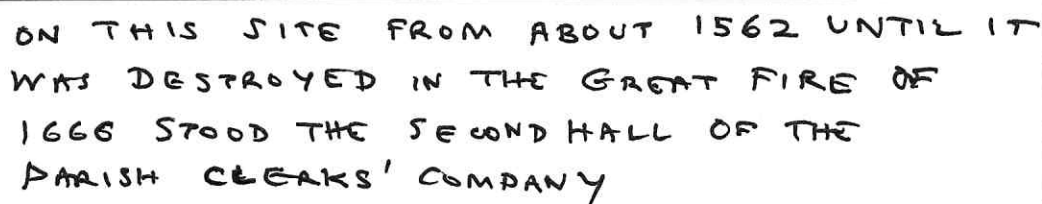 ON THIS SITE FROM ABOUT 1562 UNTIL IT
WAS DESTROYED IN THE GREAT FIRE OF
1666 STOOD THE SECOND HALL OF THE
PARISH CLERKS' COMPANY